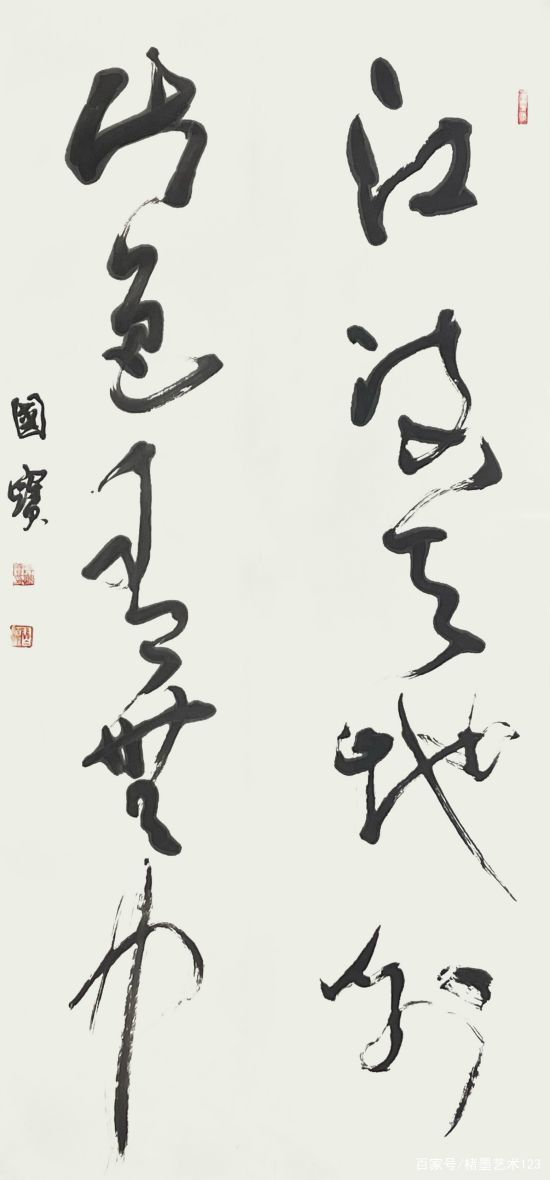 江流天地外
山色有無中
國寶
百家号/楮墨艺术123